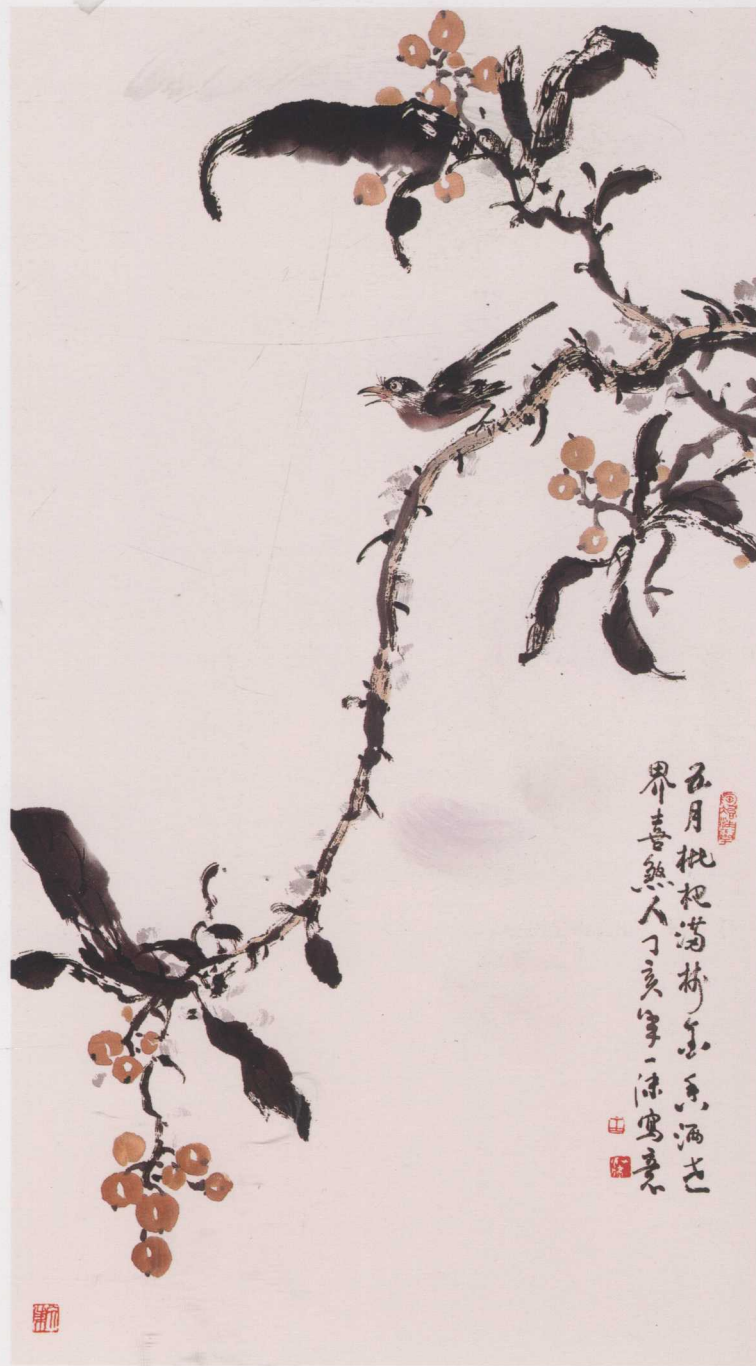 五月枇杷满树金香洒世
界喜煞人丁亥年一沫写意